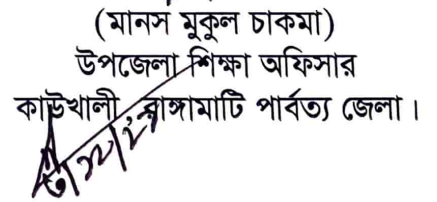 (মানস মুকুল চাকমা)
উপজেলা শিক্ষা অফিসার
কাউখালী, রাঙ্গামাটি পার্বত্য জেলা।